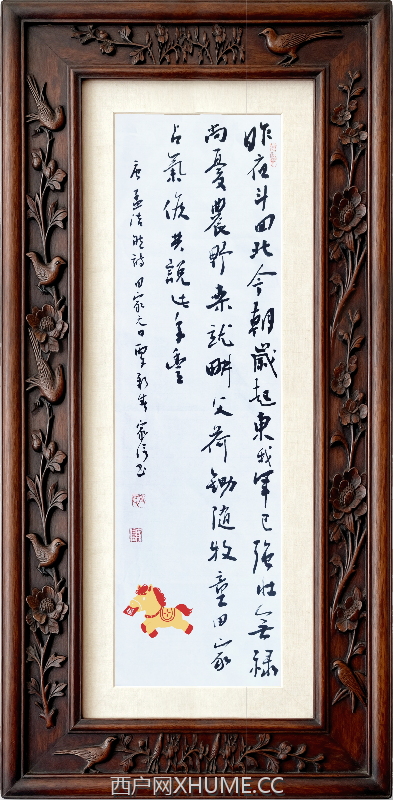 昨夜斗回北今朝歲起東我年已强壯無禄
尚憂農野桑就畊父荷鋤隨牧童田家
占氣候共說此年豐
唐孟浩然詩田家元日
西户网XHUME.CC